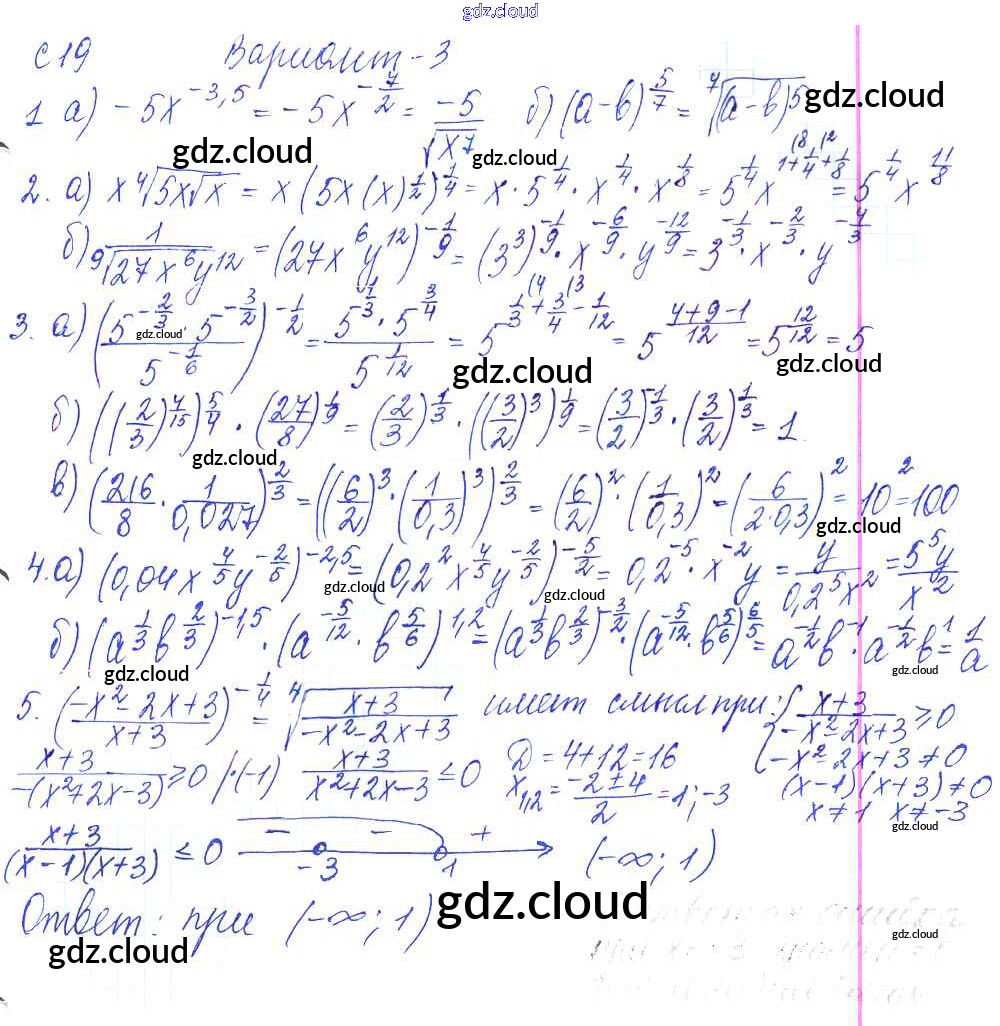 gdz.cloud
С 19 Вариант-3
1 а) -5x^{-3,5} = -5x^{-7/2} = -5/√(x7) б) (a-b)^{5/7} = ⁷√(a-b)5
gdz.cloud gdz.cloud gdz.cloud
2. а) x⁴√(5x√x) = x(5x(x)^{1/2})^{1/4} = x · 5^{1/4} · x^{1/4} · x^{1/8} = 5^{1/4} x^{1+1/4+1/8} = 5^{1/4} x^{11/8}
б) 1/⁹√(27x⁶y¹²) = (27x⁶y¹²)^{-1/9} = (3³)^{-1/9} · x^{-6/9} · y^{-12/9} = 3^{-1/3} · x^{-2/3} · y^{-4/3}
3. а) ((5^{-2/3} · 5^{-3/2})/5^{-1/6})^{-1/2} = (5^{1/3} · 5^{3/4})/5^{1/12} = 5^{1/3+3/4-1/12} = 5^{(4+9-1)/12} = 5^{12/12} = 5
gdz.cloud gdz.cloud gdz.cloud
б) ((2/3)^{4/15})^{5/4} · (27/8)^{1/9} = (2/3)^{1/3} · ((3/2)³)^{1/9} = (3/2)^{-1/3} · (3/2)^{1/3} = 1.
gdz.cloud
в) (216/8 · 1/0,027)^{2/3} = ((6/2)³ · (1/0,3)³)^{2/3} = (6/2)² · (1/0,3)² = (6/(2·0,3))² = 10² = 100
gdz.cloud
4. а) (0,04x^{4/5}y^{-2/5})^{-2,5} = (0,2²x^{4/5}y^{-2/5})^{-5/2} = 0,2^{-5} · x^{-2}y = y/(0,2⁵x²) = 5⁵y/x²
gdz.cloud gdz.cloud gdz.cloud
б) (a^{1/3}b^{2/3})^{-1,5} · (a^{-5/12} · b^{5/6})^{1,2} = (a^{1/3}b^{2/3})^{-3/2} · (a^{-5/12} · b^{5/6})^{6/5} = a^{-1/2}b^{-1} · a^{-1/2}b¹ = 1/a
gdz.cloud gdz.cloud gdz.cloud
5. ((-x²-2x+3)/(x+3))^{-1/4} = ⁴√((x+3)/(-x²-2x+3)) имеет смысл при: { (x+3)/(-x²-2x+3) ≥ 0
-x²-2x+3 ≠ 0
(x+3)/(-(x²+2x-3)) ≥ 0 |·(-1) (x+3)/(x²+2x-3) ≤ 0 D = 4+12 = 16
x₁,₂ = (-2±4)/2 = 1; -3
(x-1)(x+3) ≠ 0
x ≠ 1 x ≠ -3
gdz.cloud
(x+3)/((x-1)(x+3)) ≤ 0 - - + -3 1 (-∞; 1)
Ответ: при (-∞; 1)
gdz.cloud gdz.cloud gdz.cloud